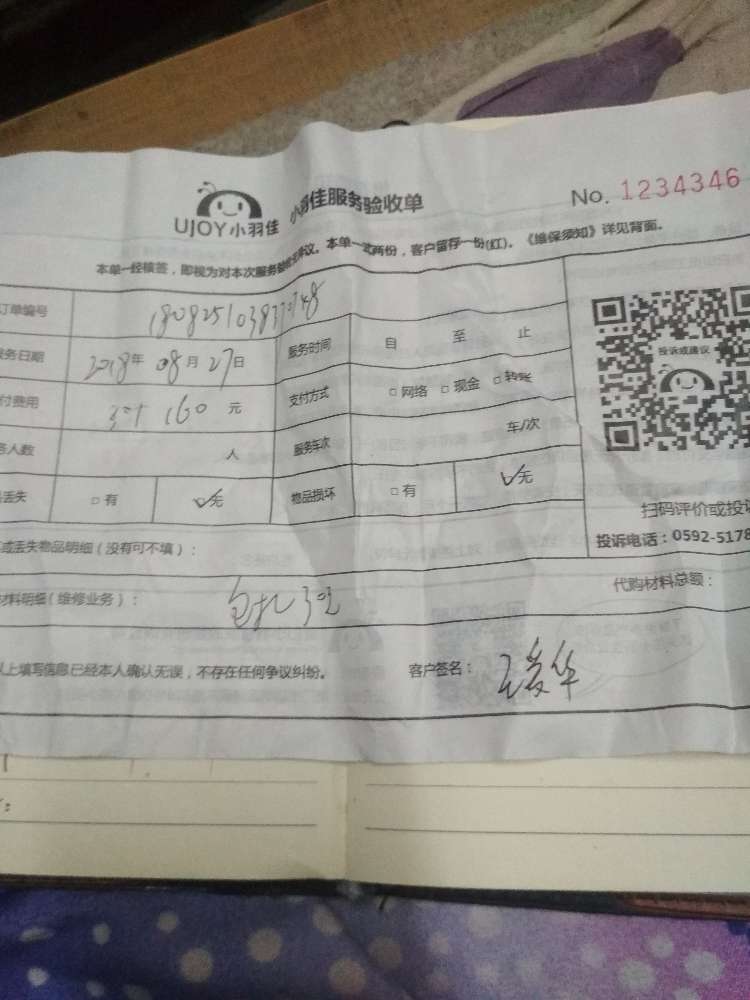 UJOY小羽佳 小羽佳服务验收单 No. 1234346
本单一经核签，即视为对本次服务 议。本单一式两份，客户留存一份(红)。《维保须知》详见背面。
订单编号 服务时间 自 至 止
务日期 2018年 08月 27日 支付方式 □网络 □现金 □转账
付费用 160 元 服务车次 车/次
人数 人
丢失 □有 ✓无 物品损坏 □有 ✓无
投诉或建议
扫码评价或投诉
投诉电话：0592-5178
或丢失物品明细（没有可不填）：
材料明细（维修业务）： 代购材料总额：
以上填写信息已经本人确认无误，不存在任何争议纠纷。 客户签名：